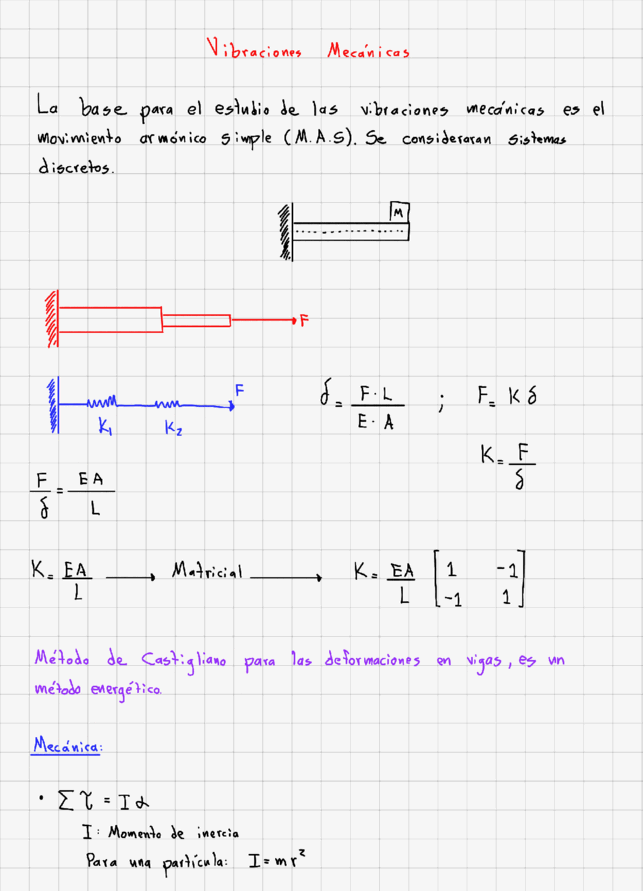 Vibraciones Mecánicas
La base para el estudio de las vibraciones mecánicas es el
movimiento armónico simple (M.A.S). Se consideraran sistemas
discretos.
M
F
F
K₁ K₂
δ = F·L / E·A ; F = K δ
K = F / δ
F / δ = EA / L
K = EA / L → Matricial → K = EA / L [1 -1
-1 1]
Método de Castigliano para las deformaciones en vigas, es un
método energético.
Mecánica:
• Σ τ = I α
I: Momento de inercia
Para una partícula: I = mr²